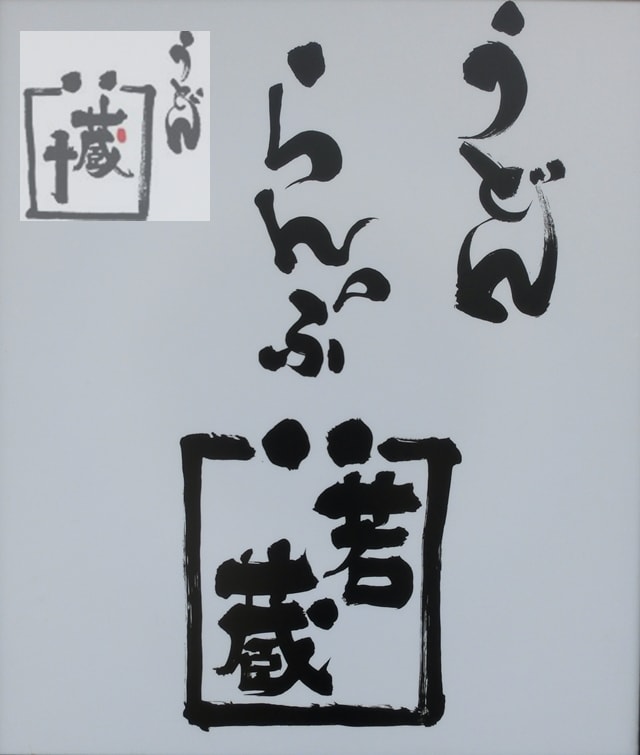 うどん
らんぷ
若
蔵
うどん
蔵